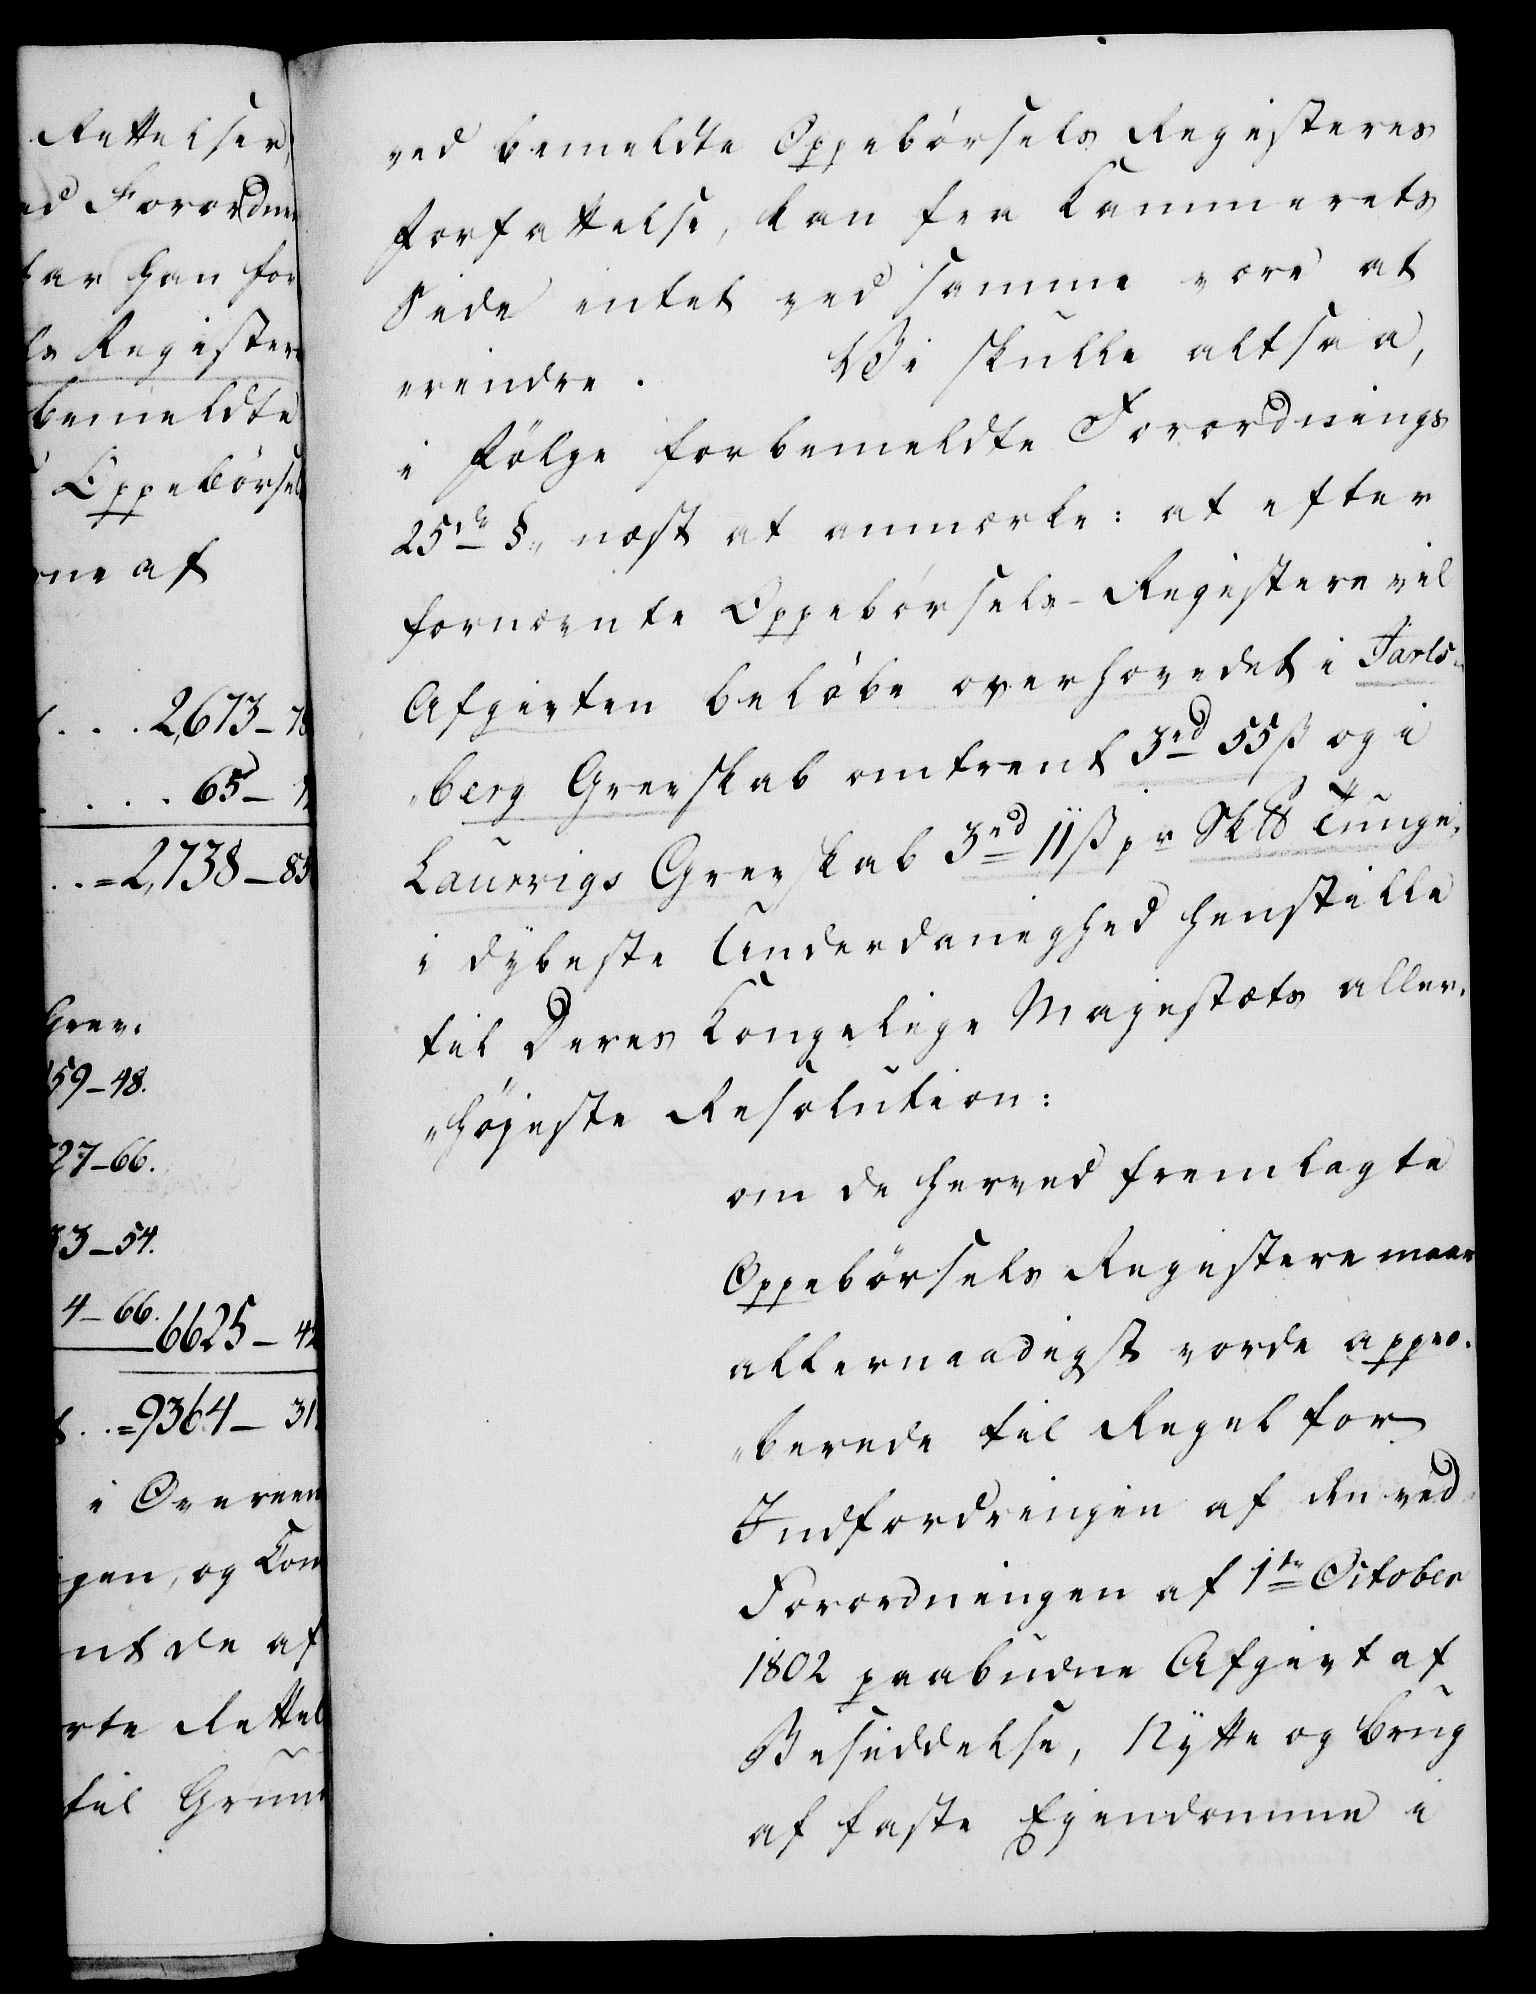 Rettelser,
ed Forordnin
har han for
ls Registere
bemeldte
Oppebörsel
rne af
. . . 2,673-78
. . . . 65-
. . = 2,738-85
Grev:
159-48.
27-66.
33-54.
4-66. 6625-42
. . = 9364-31
i Overeen
gen, og Com
nt de af
rte Rettel
til Grun
ved bemeldte Oppebörsels Registeres
Forfattelse, kan fra Kammerets
Side intet ved samme være at
erindre. Vi skulle altsaa,
i Fölge forbemeldte Forordnings
25de §, næst at anmærke: at efter
fornævnte Oppebörsels-Registere vil
Afgivten belöbe overhovedet i Jarls-
„berg Grevskab omtrent 3rd 55ß og i
Laurvigs Grevskab 3rd 11ß pr Sk℔ Tunge,
i dybeste Underdanighed henstille
til Deres Kongelige Majestæts aller-
„höjeste Resolution:
om de herved fremlagte
Oppebörsels Registere maae
allernaadigst vorde appro-
„berede til Regel for
Indfordringen af den ved
Forordningen af 1te October
1802 paabudne Afgivt af
Besiddelse, Nytte og Brug
af faste Ejendomme i